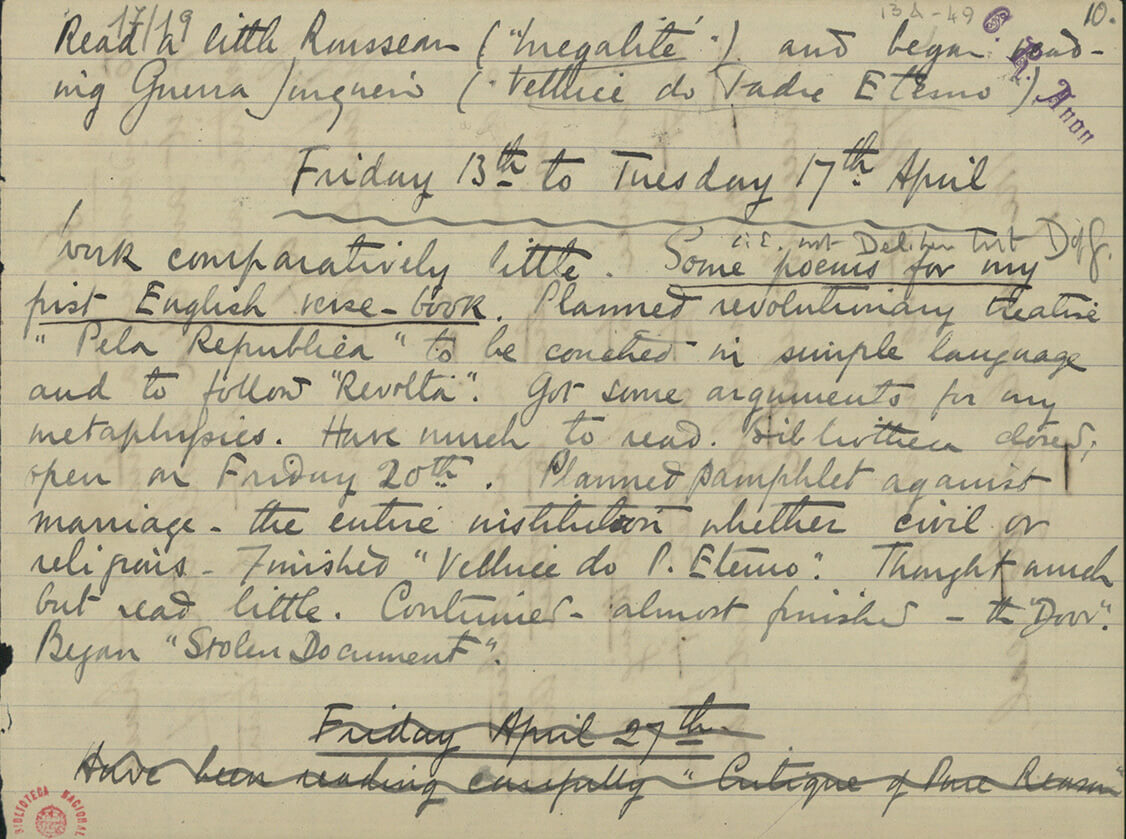 17/19
13A-49
10.
C. R. Anon
Read a little Rousseau ("Inegalité") and began read-
ing Guerra Junqueiro ("Velhice do Padre Eterno").
Friday 13th to Tuesday 17th April
i.e. not Delibn but
Work comparatively little. Some poems for my
first English verse-book. Planned revolutionary treatise
"Pela Republica" to be couched in simple language
and to follow "Revolta". Got some arguments for my
metaphysics. Have much to read. Bibliotheca closed;
open on Friday 20th. Planned pamphlet against
marriage - the entire institution whether civil or
religious - Finished "Velhice do P. Eterno". Thought much
but read little. Continued - almost finished - the "Door".
Began "Stolen Document".
Friday April 27th
Have been reading carefully "Critique of Pure Reason"
BIBLIOTECA NACIONAL